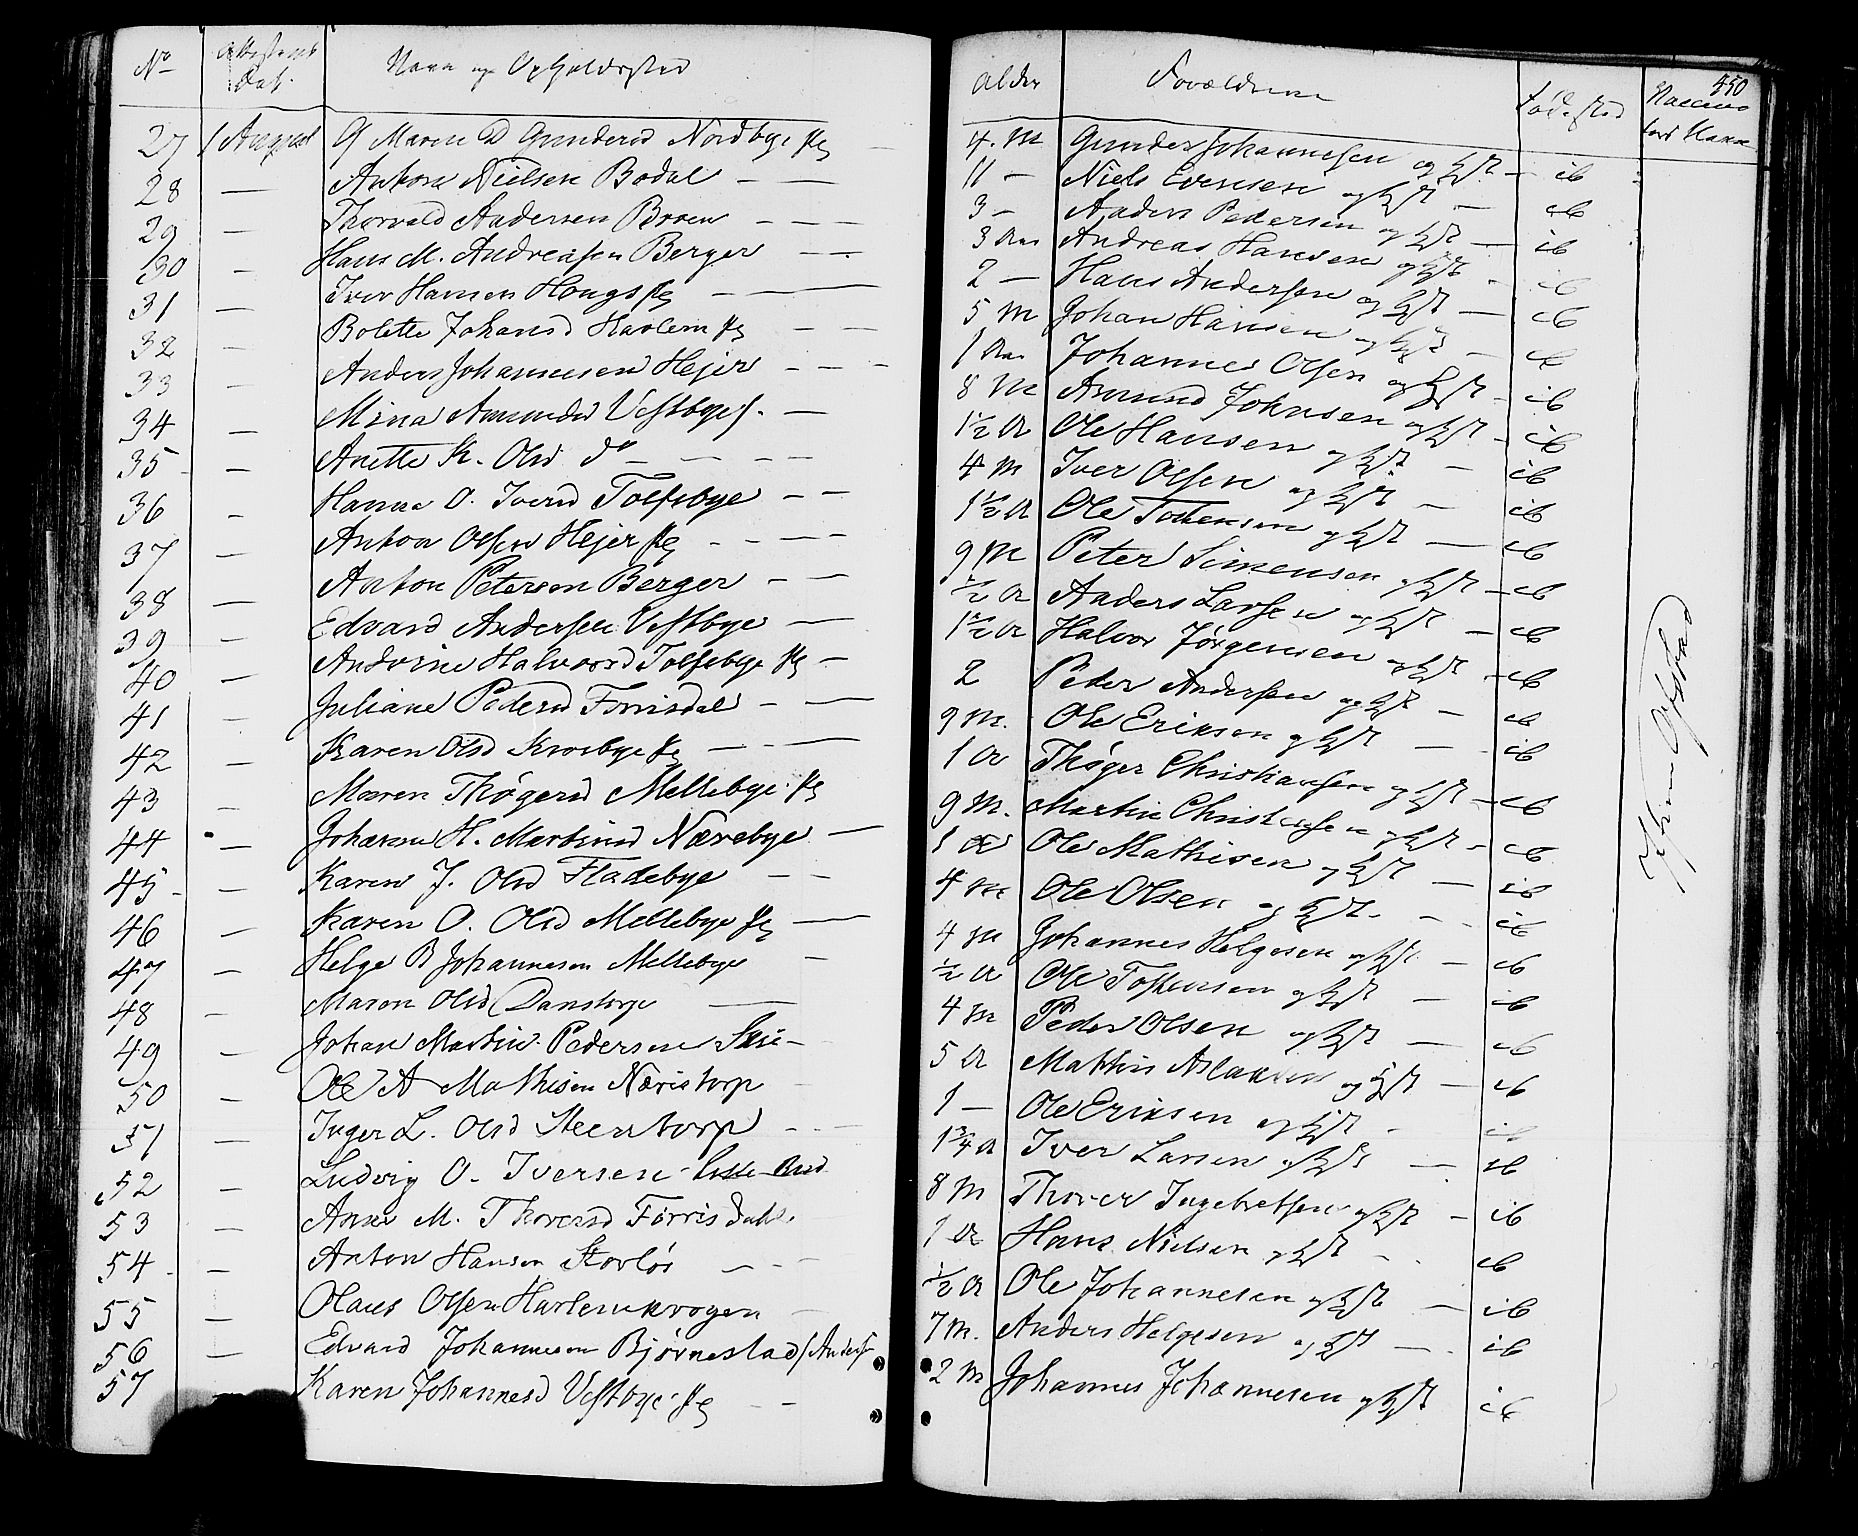 No Attestens Dat. Navn og Opholdssted Alder Forældrene Fødested 450
27 1 August Maren D Gundersd Nordbye 4. M Gunder Johannesen og Hst ib
28 — Anton Nielsen Bodal — — 11 — Niels Evensen og Hst — ib
29 — Thorvald Andersen Braen — — — 3 — Anders Pedersen og Hst — ib
30 — Hans M. Andreasen Berger — — 3 Aar Andreas Hansen og Hst - ib
31 — Iver Hansen Hougs — — 2 — Hans Andersen og Hst — ib
32 — Bolette Johansd Harlem — — 5 M Johan Hansen og Hst — ib
33 — Anders Johannesen Hejer — — — 1 Aar Johannes Olsen og Hst - ib
34 — Mina Amundsd Vestbye — 8 M Amund Johnsen og Hst - ib
35 — Anette K. Olsd do — — — 1½ A Ole Hansen og Hst — ib
36 — Hanna O. Iversd Tolfsbye — — 4 M Iver Olsen og Hst — ib
37 — Anton Olsen Hejer — — — 1½ A Ole Tostensen og Hst — ib
38 — Anton Petersen Berger — — 9 M Peter Simensen og Hst — ib
39 — Edvard Andersen Vestbye — ½ A Anders Larsen og Hst — ib
40 — Andrine Halvorsd Tolfsbye — 1½ A Halvor Jørgensen og Hst — ib
41 — Juliane Pedersd Forrisdal — — 2 Peder Andersen og Hst — ib
42 — Karen Olsd Krosbye — — 9 M. Ole Eriksen og Hst — ib
43 — Maren Thøgersd Mellebye 1 A Thøger Christiansen og Hst — ib
44 — Johanne H. Martinsd Nærebye — 9 M. Martin Christensen og Hst - ib
45 — Karen J. Olsd Fladebye — — 1 A Ole Mathisen og Hst — ib
46 — Karen O. Olsd Mellebye — 4 M Ole Olsen og Hst — ib
47 — Helge B Johannesen Mellebye — 4 M Johannes Helgesen og Hst — ib
48 — Maren Olsd Danstorp — ½ A Ole Tostensen og Hst — ib
49 — Johan Martin Pedersen Skie — 4 M Peder Olsen og Hst — ib
50 — Ole A Mathisen Næristorp 5 A Mathis Aslaksen og Hst — ib
51 — Inger L. Olsd Steentorp — — 1 — Ole Eriksen og Hst - ib
52 — Ludvig O. Iversen Lille-Rud 1¾ A Iver Larsen og Hst — ib
53 — Anne M. Thoversd Førrisdahl. 8 M Thover Ingebretsen og Hst — ib
54 — Anton Hansen Skorløs — — 1 A Hans Nielsen og Hst - ib
55 — Olaus Olsen Harlemkrogen — ½ A Ole Johannesen og Hst — ib
56 — Edvard Johannesen Bjørnestad 7 M. Anders Helgesen og Hst — ib
57 — Karen Johannesd Vestbye — — 2 M Johannes Johannesen og Hst ib